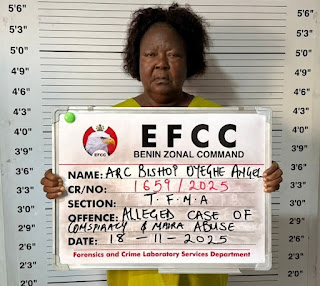 5'6"
5'3"
5'0"
4'9"
4'6"
4'3"
4'0"
3'9"
3'6"
3'3"
5'6"
5'3"
5'0"
4'9"
4'6"
4'3"
4'0"
3'9"
3'6"
3'3"
EFCC
EFCC
BENIN ZONAL COMMAND
NAME: ARC BISHOP OYEGHE ANGEL
CR/NO: 1659/2025
SECTION: T.F.M.A
OFFENCE: ALLEGED CASE OF
CONSPIRACY & NAIRA ABUSE
DATE: 18-11-2025
Forensics and Crime Laboratory Services Department